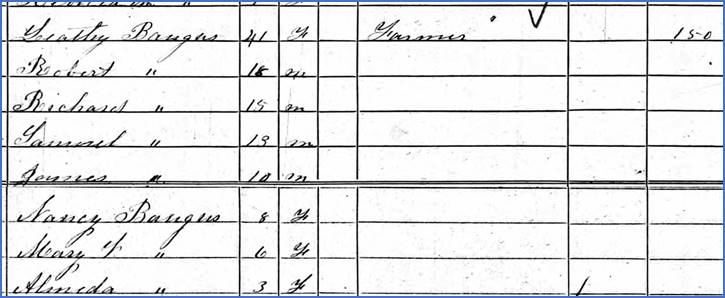 Leathy Bangus 41 F Farmer " ✓ 150
Robert " 18 m
Richard " 15 m
Samuel " 13 m
James " 10 m
Nancy Bangus 8 F
Mary F " 6 F
Almeda " 3 F /